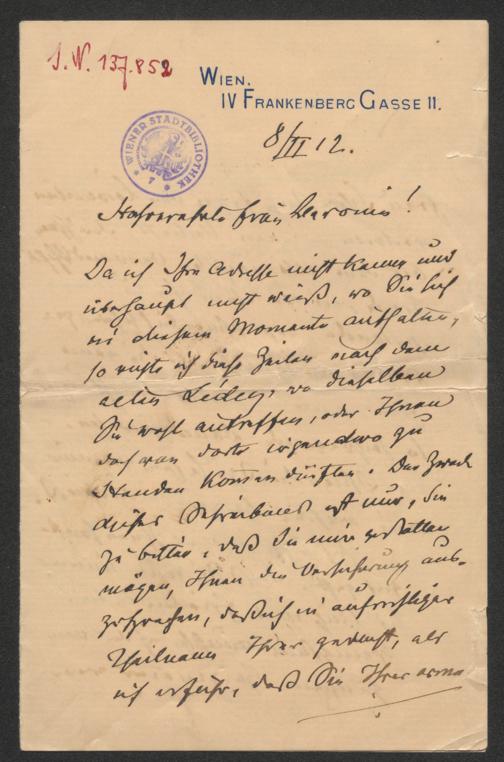 J. N. 137.852
WIEN.
IV FRANKENBERG GASSE 11.
WIENER STADTBIBLIOTHEK
* 7 *
8/II 12.
Hochverehrte Frau Baronin!
Da ich Ihre Adresse nicht kenne und
überhaupt nicht weiß, wo Sie sich
in diesem Momente aufhalten,
so richte ich diese Zeilen nach dem
alten, wo dieselben
Sie wohl antreffen, oder Ihnen
doch von dort irgendwo zu
Handen kommen dürften. Der Zweck
dieses Schreibens ist nur, Sie
zu bitten, daß Sie mir gestatten
mögen, Ihnen die Versicherung aus-
zusprechen, daß ich in aufrichtiger
Theilnahme Ihrer gedenke, als
ich erfuhr, daß Sie Ihrer arme